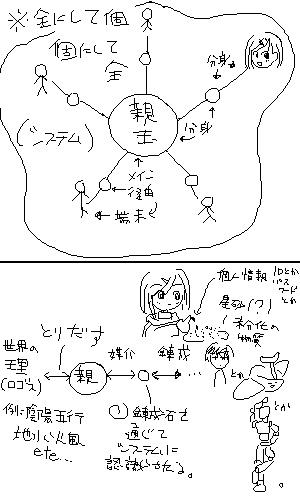 ※全にして個
個にして
全
分身
親
玉
分身
(システム)
メイン
経由
端末
個人情報
IDとか
パス
ワード
とか
星砂(?)
未分化の
物質
とりだす
世界の
(ロゴス)
親
媒介
錬成
…
とか
とか
例:陰陽五行
地水火風
etc…
①錬成石を
通じて
システムに
認識かたる。